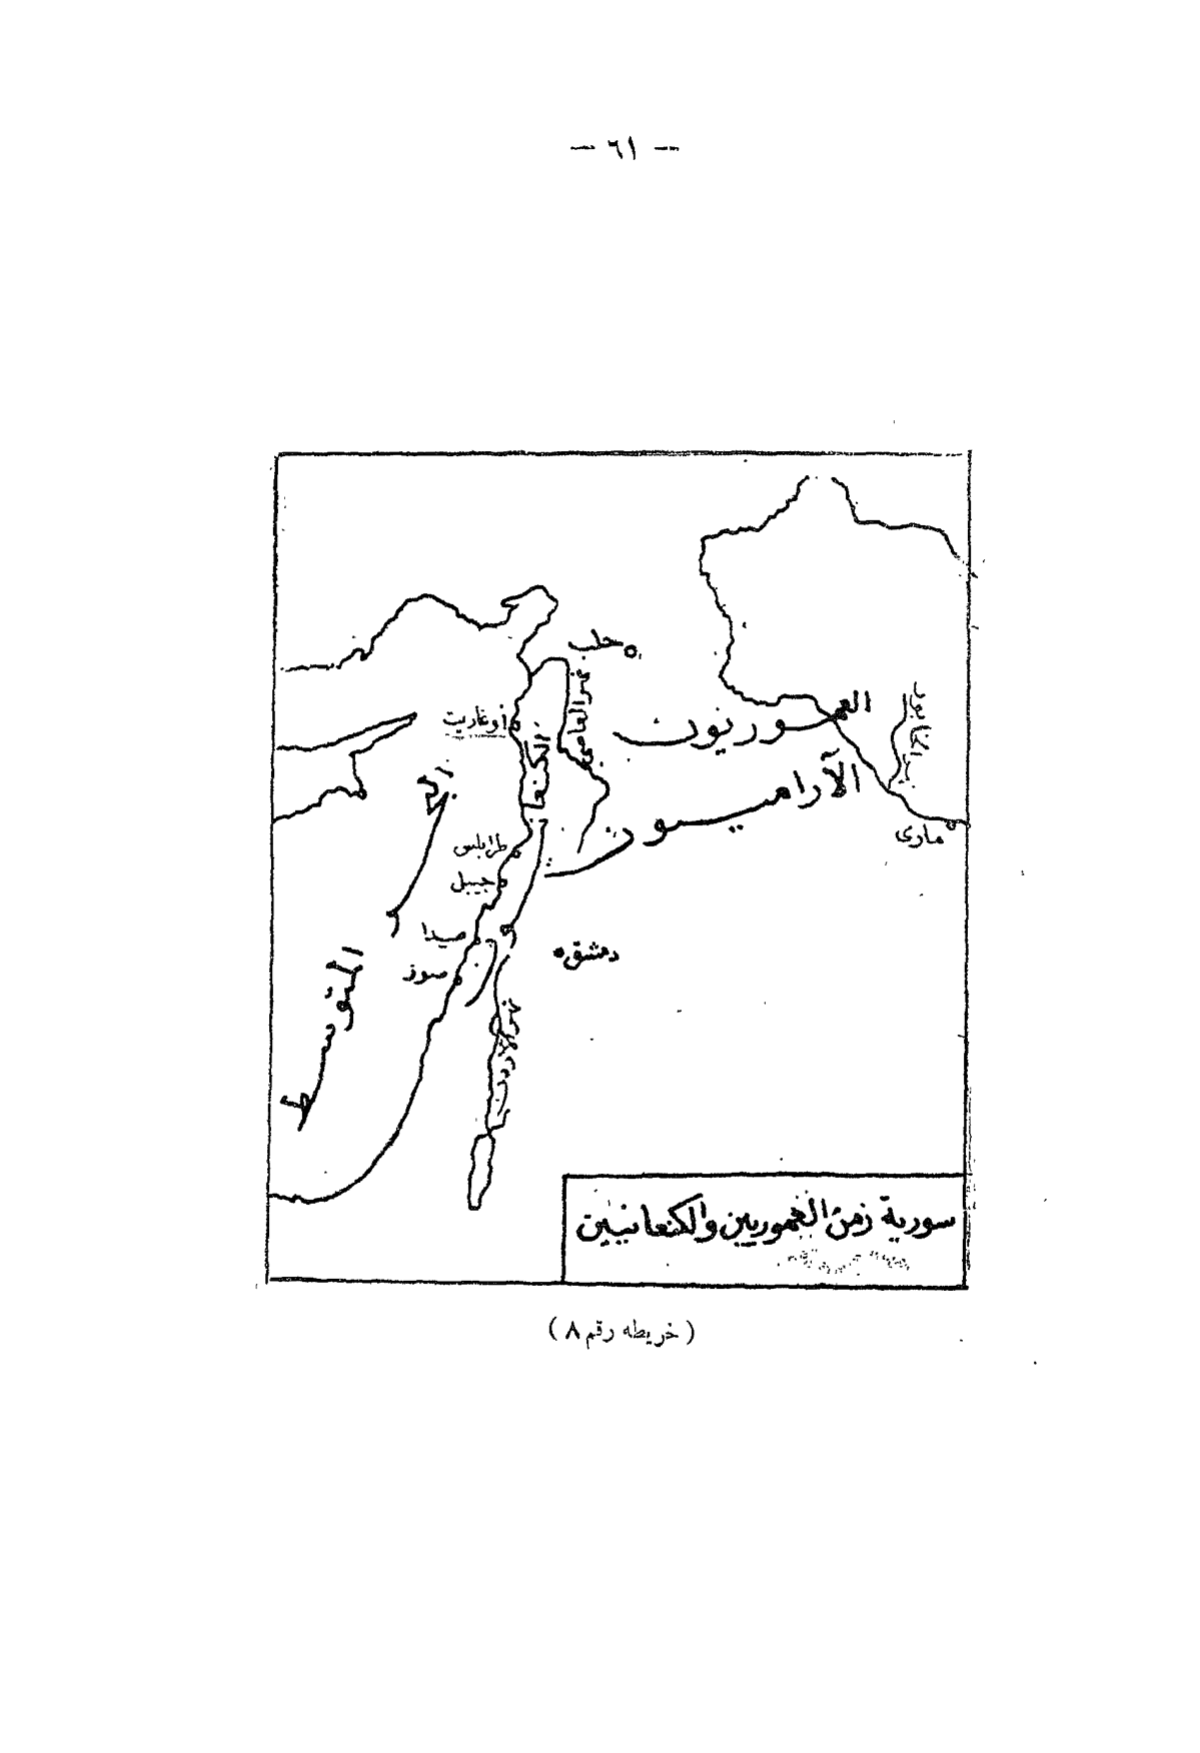 — ٦١ —
حلب
نهر العاصي
أوغاريت
العموريون
الخابور
الآراميون
ماري
البحر
المتوسط
طرابلس
جبيل
صيدا
صور
دمشق
نهر الأردن
سورية زمن العموريين والكنعانيين
( خريطه رقم ٨ )